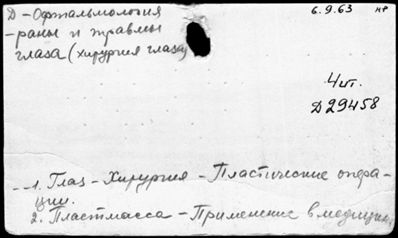 Д - Офтальмология
- раны и травмы
глаза (хирургия глаза)
6.9.63 нр
4 чт.
Д29458
1. Глаз - Хирургия - Пластические опера-
ции.
2. Пластмасса - Применение в медицине.